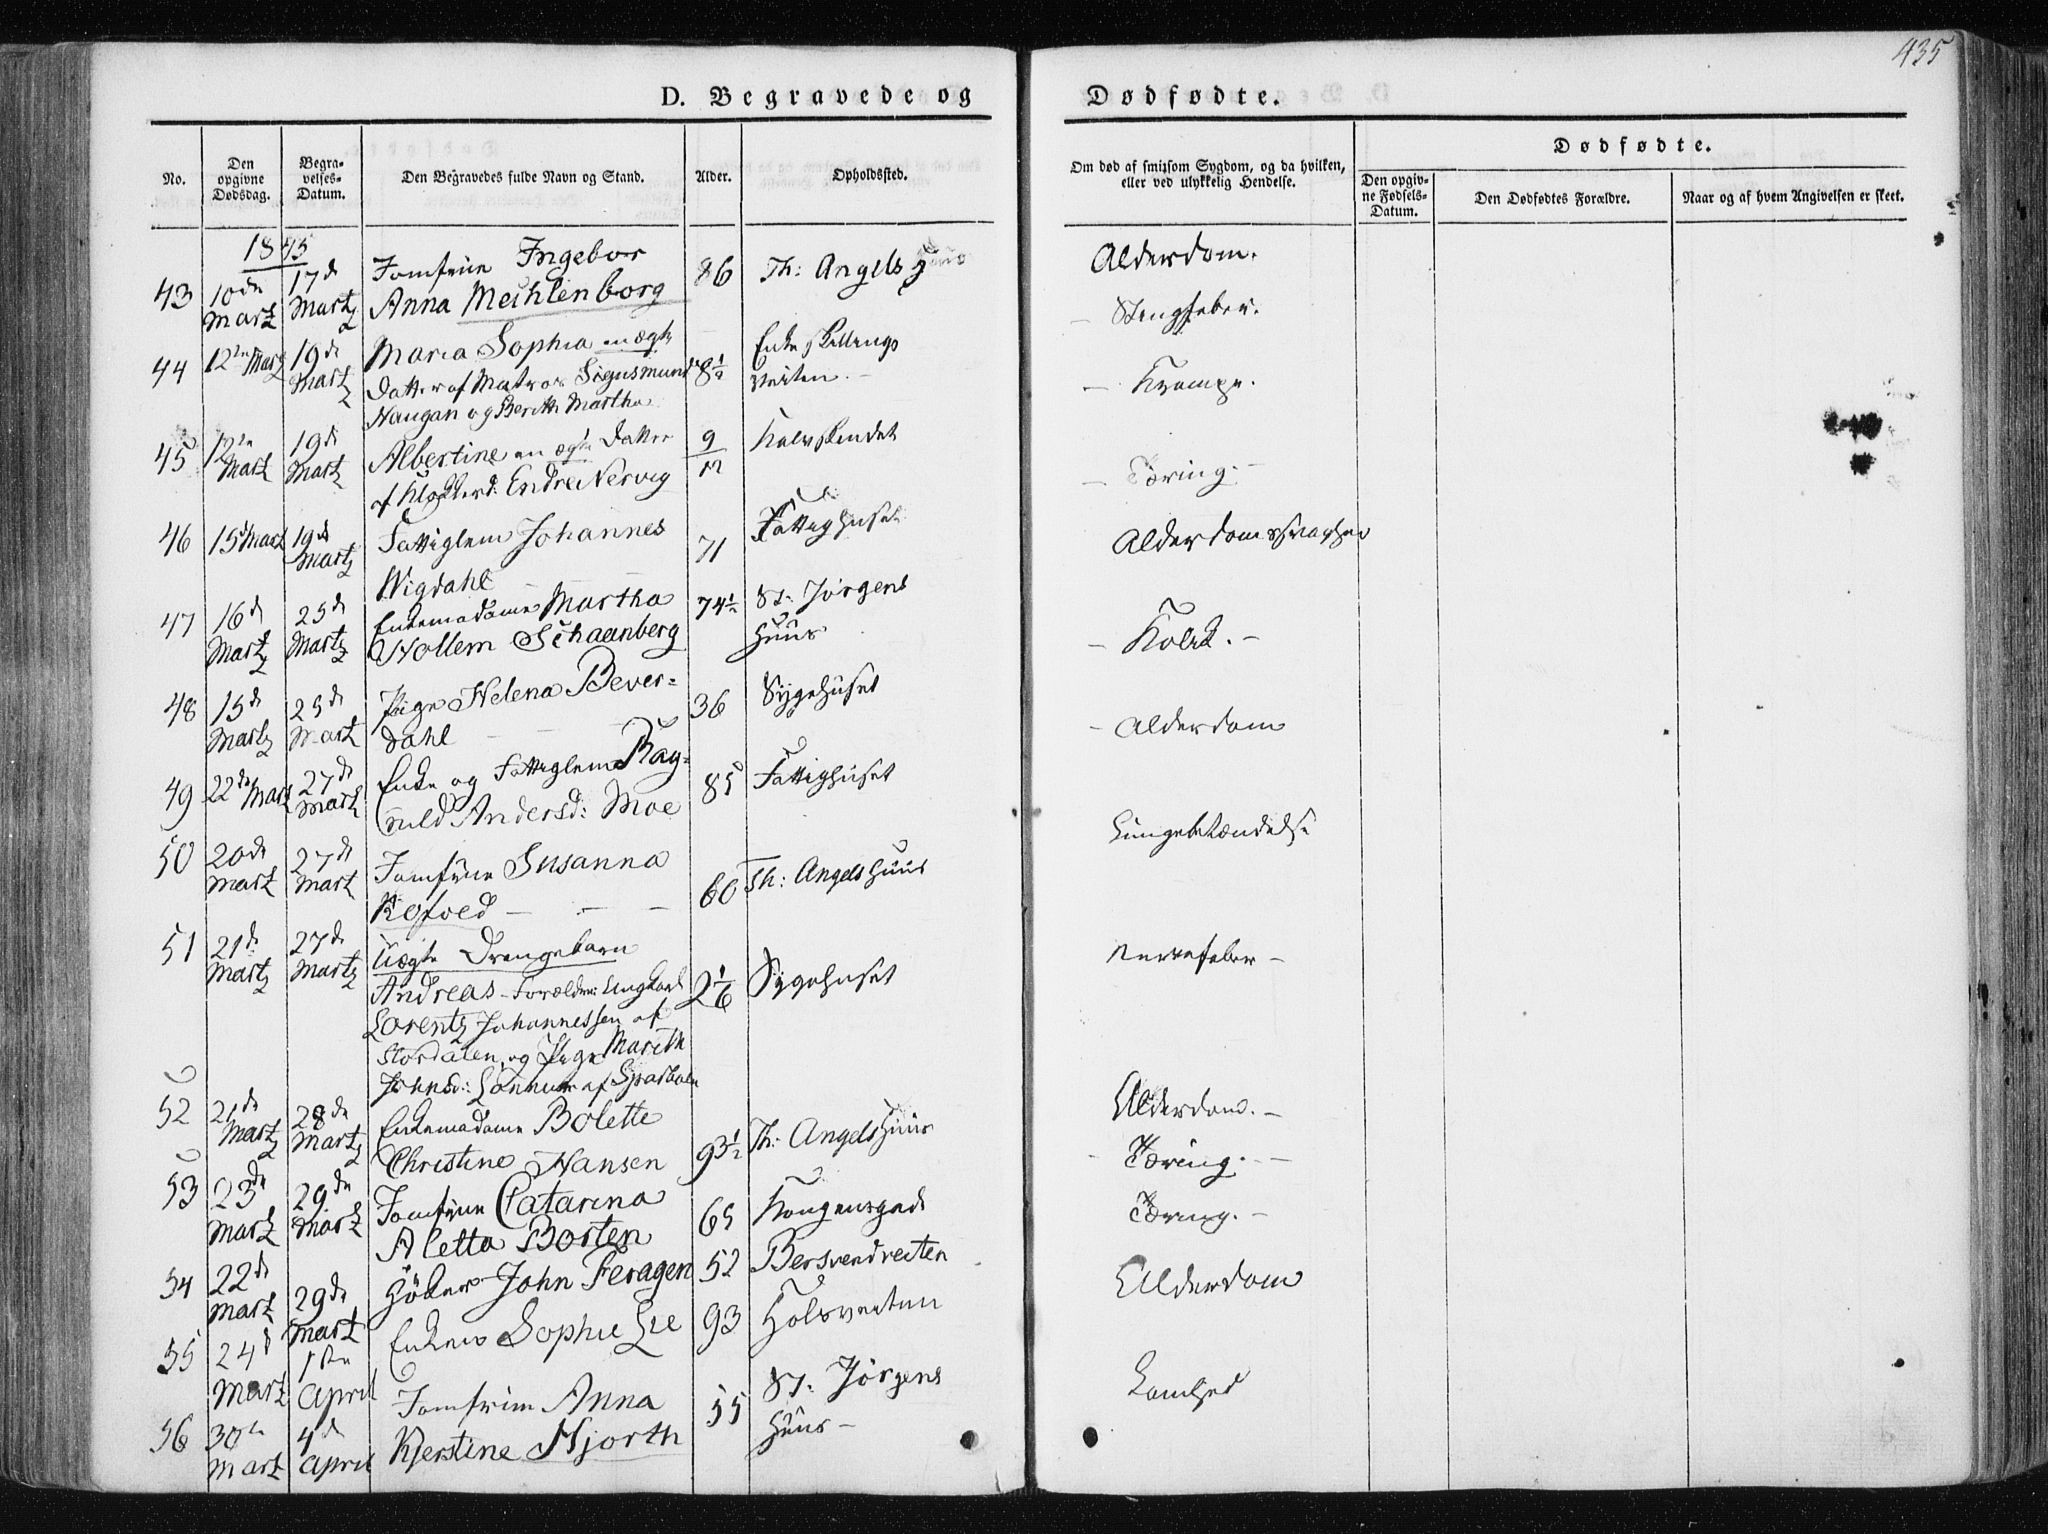 435
D. Begravede og Dødfødte.
No.
Den opgivne Dødsdag.
Begravelses-Datum.
Den Begravedes fulde Navn og Stand.
Alder.
Opholdssted.
Om død af smitsom Sygdom, og da hvilken, eller ved ulykkelig Hendelse.
Dødfødte.
Den opgivne Fødsels-Datum.
Den Dødfødtes Forældre.
Naar og af hvem Angivelsen er skeet.
1845
43 10de Martz 17de Martz Jomfrue Ingebor
Anna Mechlenborg 86 Th: Angels Alderdom.
44 12te Martz 19de Martz Maria Sophia en ægte
Datter af Matros Sigusmund
Naugan og Berith Martha 8½ Enkeskillings
veiten. – – Krampe.
45 12te Martz 19de Martz Albertine en ægte Datter
af Endre Nervig 9/12 Kalvskindet – Tæring. –
46 15de Martz 19de Martz Fattiglem Johannes
Wigdahl 71 Fattighuset Alderdomssvaghed
47 16de Martz 25de Martz Enkemadame Martha
Hollem Schaanberg 74½ St: Jørgens
Huus – Kolik. –
48 15de Martz 25de Martz Pige Helena Bever=
dahl – 36 Sygehuset
49 22de Martz 27de Martz Enke og Fattiglem Rag=
nild Andersd: Moe 85 Fattighuset – Alderdom
50 20de Martz 27de Martz Jomfrue Susanna
Kofoed – – – 60 Th: Angels Huus Lungebetændelse
51 21de Martz 27de Martz Uægte Drengebarn
Andreas – Forældre: Ungkarl
Lorentz Johannessen af
Stordalen, og Pige Marith
Johnsd: Lonnum af Sparboen 2 1/6 Sygehuset Nervefeber –
52 21de Martz 28de Martz Enkemadame Bolette
Christine Hansen 93½ Th: Angels Huus Alderdom. –
53 23de Martz 29de Martz Jomfrue Catarina
Aletta Borten 65 Kongensgade – Tæring. –
54 22de Martz 29de Martz Höker John Feragen 52 Bersvendveiten Tæring. –
55 24de Martz 1ste April Enken Sophie Lie 93 Alderdom
56 30te Martz 4de April Jomfrue Anna
Kjerstine Hjorth 55 St: Jørgens
Huus –